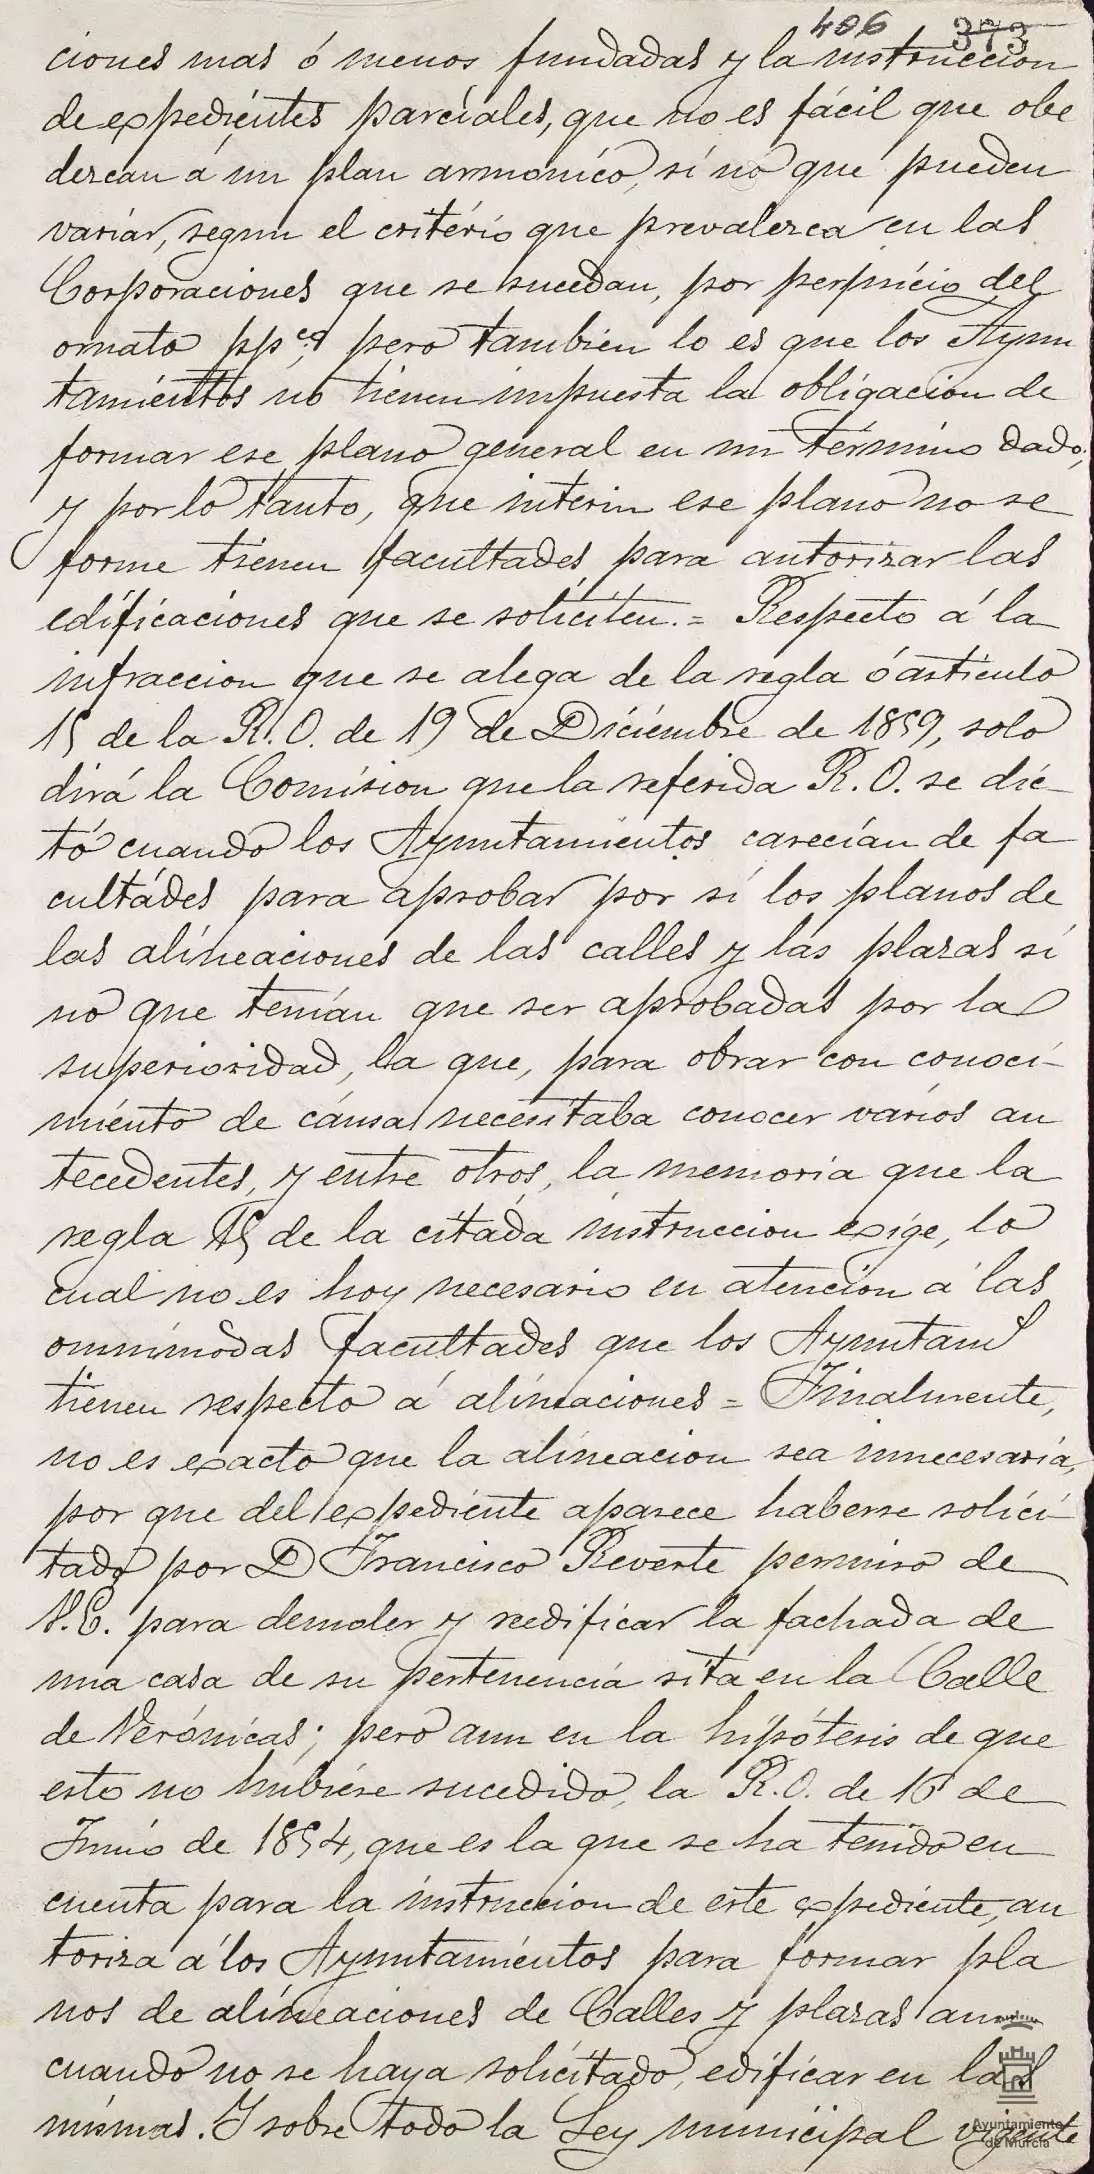 406 373
ciones mas ó menos fundadas y la instruccion
de expedientes parciales, que no es fácil que obe
dezcan á un plan armonico, si no que pueden
variar, segun el critério que prevalezca en las
Corporaciones que se sucedan, por perjuicio del
ornato ppco, pero tambien lo es que los Ayun
tamientos no tienen impuesta la obligacion de
formar ese plano general en un término dado,
y por lo tanto, que interin ese plano no se
forme tienen facultades para autorizar las
edificaciones que se soliciten. = Respecto á la
infraccion que se alega de la regla ó articulo
15 de la R.O. de 19 de Diciembre de 1859, solo
dirá la Comision que la referida R. O. se dic-
tó cuando los Ayuntamientos carecían de fa
cultades para aprobar por sí los planos de
las alineaciones de las calles y las plazas si
no que tenian que ser aprobadas por la
superioridad, la que, para obrar con conoci-
miento de causa necesitaba conocer varios an
tecedentes, y entre otros, la memoria que la
regla 15 de la citada instruccion exige, lo
cual no es hoy necesario en atencion á las
omnimodas facultades que los Ayuntams
tienen respecto á alineaciones = Finalmente,
no es exacto que la alineacion sea innecesaria,
por que del expediente aparece haberse solici-
tado por D Francisco Reverte permiso de
V.E. para demoler y reedificar la fachada de
una casa de su pertenencia sita en la Calle
de Verónicas; pero aun en la hipótesis de que
esto no hubiese sucedido, la R.O. de 16 de
Junio de 1854, que es la que se ha tenido en
cuenta para la instruccion de este expediente, au
toriza á los Ayuntamientos para formar pla
nos de alineaciones de Calles y plazas aun
cuando no se haya solicitado, edificar en las
mismas. Y sobre todo la Ley municipal vigente
Ayuntamiento
de Murcia